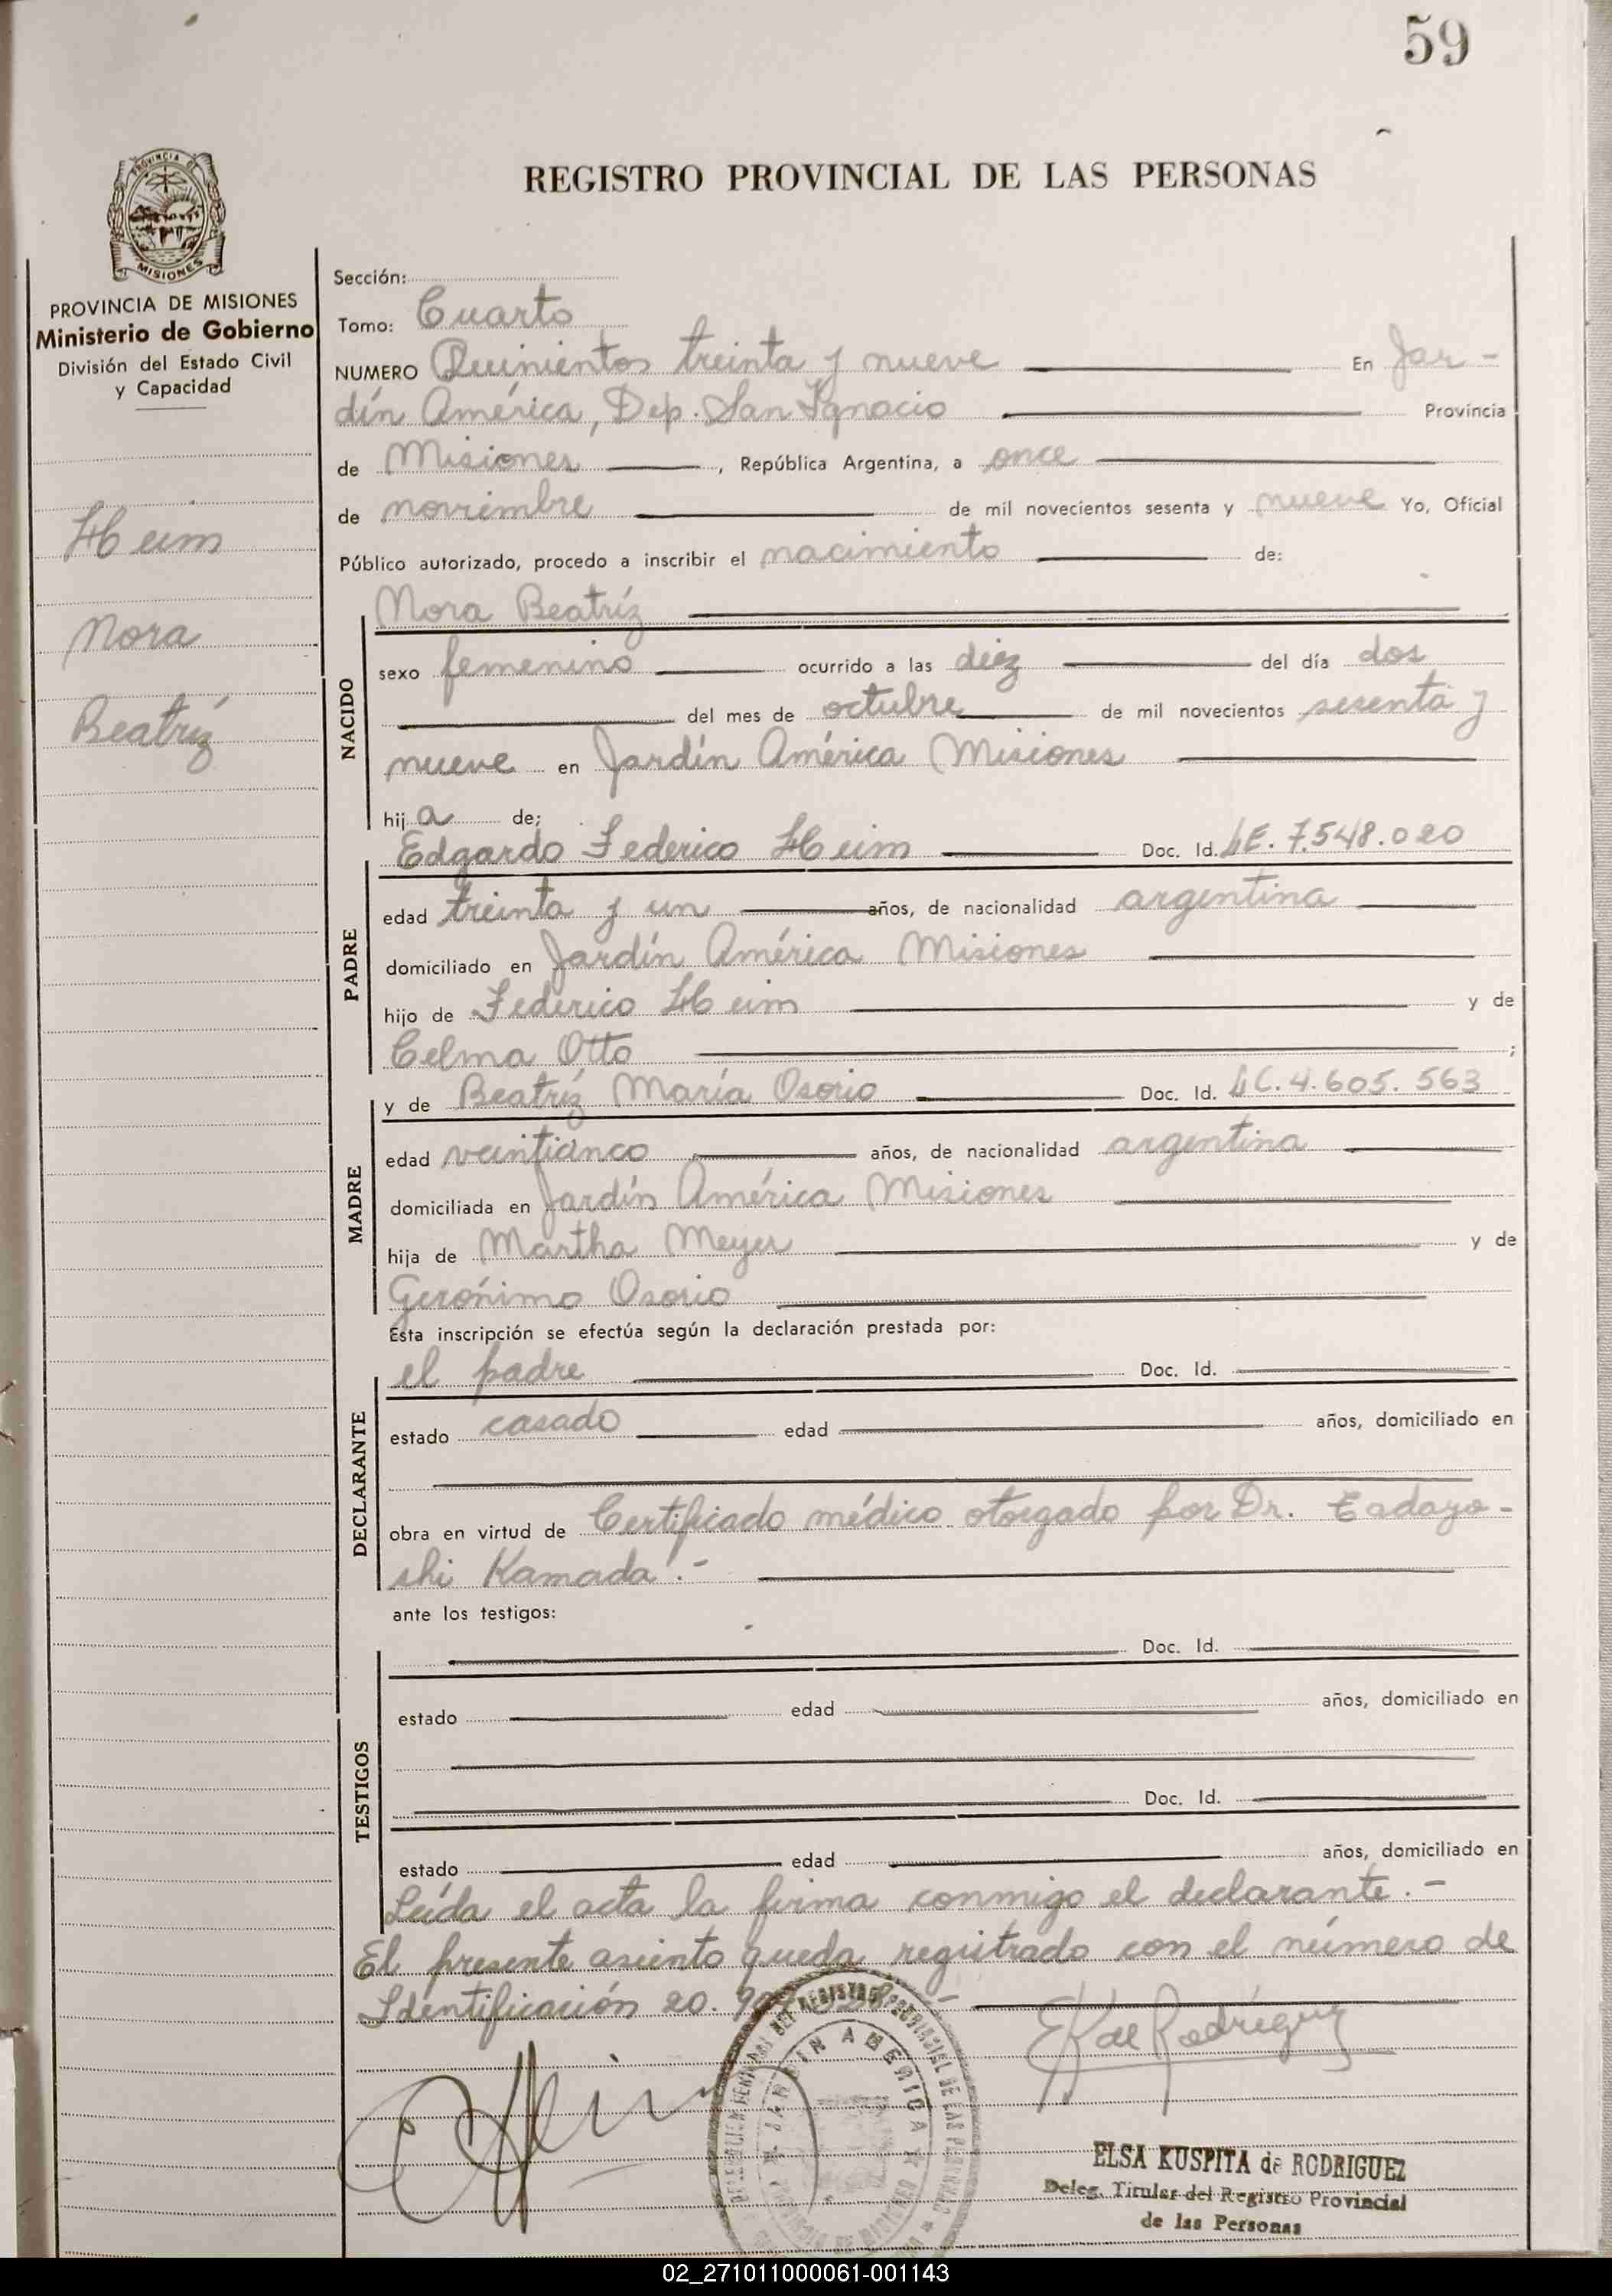 59
REGISTRO PROVINCIAL DE LAS PERSONAS
PROVINCIA DE MISIONES
PROVINCIA DE MISIONES
Ministerio de Gobierno
División del Estado Civil
y Capacidad
Heim
Nora
Beatríz
Sección:
Tomo: Cuarto
NUMERO Quinientos treinta y nueve En Jar-
dín América, Dep. San Ignacio Provincia
de Misiones, República Argentina, a once
de noviembre de mil novecientos sesenta y nueve Yo, Oficial
Público autorizado, procedo a inscribir el nacimiento de:
Nora Beatríz
NACIDO
sexo femenino ocurrido a las diez del día dos
del mes de octubre de mil novecientos sesenta y
nueve en Jardín América Misiones
hija de;
Edgardo Federico Heim Doc. Id. LE. 7.548.020
PADRE
edad treinta y un años, de nacionalidad argentina
domiciliado en Jardín América Misiones
hijo de Federico Heim y de
Celma Otto ;
y de Beatríz María Osorio Doc. Id. LC. 4.605.563
MADRE
edad veinticinco años, de nacionalidad argentina
domiciliada en Jardín América Misiones
hija de Martha Meyer y de
Gerónimo Osorio
Esta inscripción se efectúa según la declaración prestada por:
el padre Doc. Id.
DECLARANTE
estado casado edad años, domiciliado en
obra en virtud de Certificado médico otorgado por Dr. Tadayo-
shi Kamada.-
ante los testigos:
Doc. Id.
TESTIGOS
estado edad años, domiciliado en
Doc. Id.
estado edad años, domiciliado en
Leída el acta la firma conmigo el declarante.-
El presente asiento queda registrado con el número de
Identificación 20.
EK de Rodríguez
JARDIN AMERICA
ELSA KUSPITA de RODRIGUEZ
Deleg. Titular del Registro Provincial
de las Personas
02_271011000061-001143